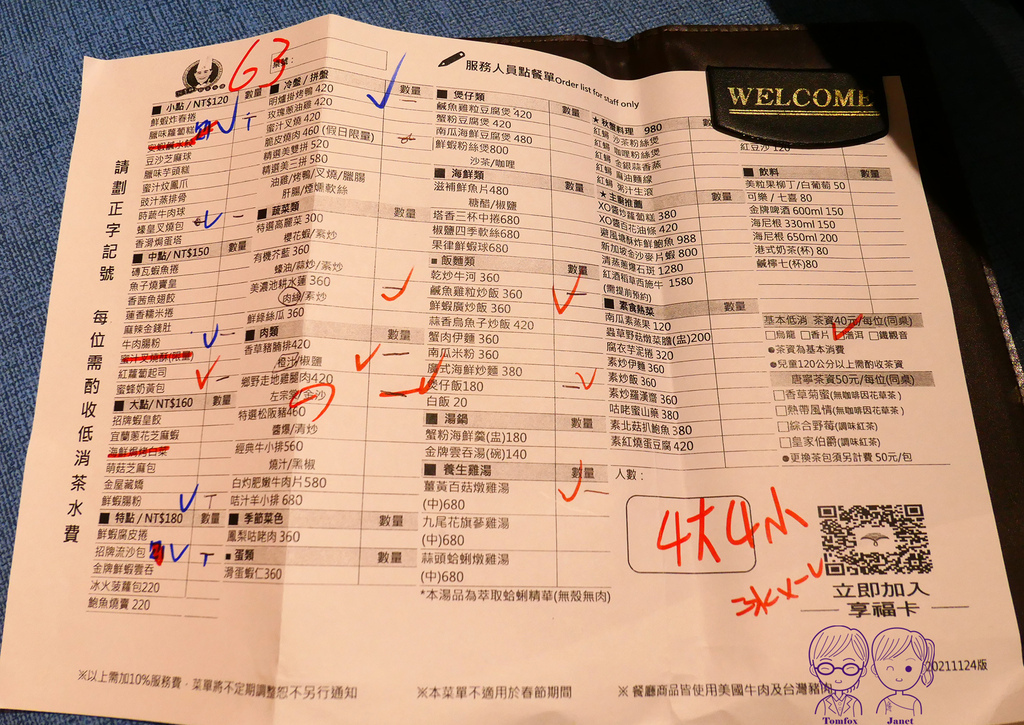 63
桌號：
服務人員點餐單Order list for staff only
WELCOME
請劃正字記號 每位需酌收低消茶水費
■ 小點 / NT$120 數量
鮮蝦炸春捲
臘味蘿蔔糕
豆沙芝麻球
臘味芋頭糕
蜜汁炆鳳爪
豉汁蒸排骨
時蔬牛肉球
蠔皇叉燒包
香滑焗蛋塔
■ 中點/ NT$150 數量
磚瓦蝦魚捲
魚子燒賣皇
香茜魚翅餃
蓮香糯米捲
麻辣金錢肚
牛肉腸粉
蜜汁叉燒酥(限量)
紅蘿蔔起司
蜜蜂奶黃包
■ 大點/ NT$160 數量
招牌蝦皇餃
宜蘭蔥花芝麻蝦
海鮮焗烤白菜
萌菇芝麻包
金屋藏嬌
鮮蝦腸粉
■ 特點 / NT$180 數量
鮮蝦腐皮捲
招牌流沙包
金牌鮮蝦雲吞
冰火菠蘿包220
鮑魚燒賣 220
■ 冷盤 / 拼盤 數量
明爐掛烤鴨 420
玫瑰蔥油雞 420
蜜汁叉燒 420
脆皮燒肉 460 (假日限量)
精選美雙拼 520
精選美三拼 580
油雞/烤鴨/叉燒/臘腸
肝腸/煙燻軟絲
■ 蔬菜類 數量
特選高麗菜 300
櫻花蝦/素炒
有機芥藍 360
蠔油/蒜炒/素炒
美濃池耕水蓮 360
肉絲/素炒
鮮綠絲瓜 360
■ 肉類 數量
香草豬腩排420
橙汁/椒鹽
鄉野走地雞腿肉420
左宗棠/金沙
特選松阪豬460
醬爆/清炒
經典牛小排560
燒汁/黑椒
白灼肥嫩牛肉片580
咭汁羊小排 680
■ 季節菜色 數量
鳳梨咕咾肉 360
■ 蛋類 數量
滑蛋蝦仁360
■ 煲仔類 數量
鹹魚雞粒豆腐煲 420
蟹粉豆腐煲 420
南瓜海鮮豆腐煲 480
鮮蝦粉絲煲800
沙茶/咖哩
■ 海鮮類 數量
滋補鮮魚片480
糖醋/椒鹽
塔香三杯中捲680
椒鹽四季軟絲680
果律鮮蝦球680
■ 飯麵類 數量
乾炒牛河 360
鹹魚雞粒炒飯 360
鮮蝦廣炒飯 360
蒜香烏魚子炒飯 420
蟹肉伊麵 360
南瓜米粉 360
廣式海鮮炒麵 380
煲仔飯180
白飯 20
■ 湯鍋 數量
蟹粉海鮮羹(盅)180
金牌雲吞湯(碗)140
■ 養生雞湯 數量
薑黃百菇燉雞湯
(中)680
九尾花旗蔘雞湯
(中)680
蒜頭蛤蜊燉雞湯
(中)680
*本湯品為萃取蛤蜊精華(無殼無肉)
★ 秋蟹料理 980 數
紅蟳 沙茶粉絲煲
紅蟳 咖哩粉絲煲
紅蟳 金銀蒜香蒸
紅蟳 麻油麵線
紅蟳 粥汁生滾
★ 主廚推薦 數量
XO醬炒蘿蔔糕 380
XO醬百花油條 420
避風塘酥炸鮮鮑魚 988
新加坡金沙麥片蝦 800
清蒸蔥爆石斑 1280
紅酒稻草西施牛 1580
(需提前預約)
■ 素食熱菜 數量
南瓜素蒸果 120
蟲草野菇燉菜膽(盅)200
腐衣芋泥捲 320
素炒伊麵 360
素炒飯 360
素炒羅漢齋 360
咕咾蜜山藥 380
素北菇扒鮑魚 380
素紅燒蛋豆腐 420
人數：
4大4小
冰X一
紅豆沙 120
■ 飲料 數量
美粒果柳丁/白葡萄 50
可樂 / 七喜 80
金牌啤酒 600ml 150
海尼根 330ml 150
海尼根 650ml 200
港式奶茶(杯) 80
鹹檸七(杯)80
基本低消 茶資40元/每位(同桌)
□烏龍 □香片 □普洱 □鐵觀音
●茶資為基本消費
●兒童120公分以上需酌收茶資
唐寧茶資50元/每位(同桌)
□香草菊蜜(無咖啡因花草茶)
□熱帶風情(無咖啡因花草茶)
□綜合野莓(調味紅茶)
□皇家伯爵(調味紅茶)
●更換茶包須另計費 50元/包
立即加入
享福卡
20211124版
※以上需加10%服務費，菜單將不定期調整恕不另行通知
※本菜單不適用於春節期間
※ 餐廳商品皆使用美國牛肉及台灣豬肉
Tomfox
Janet